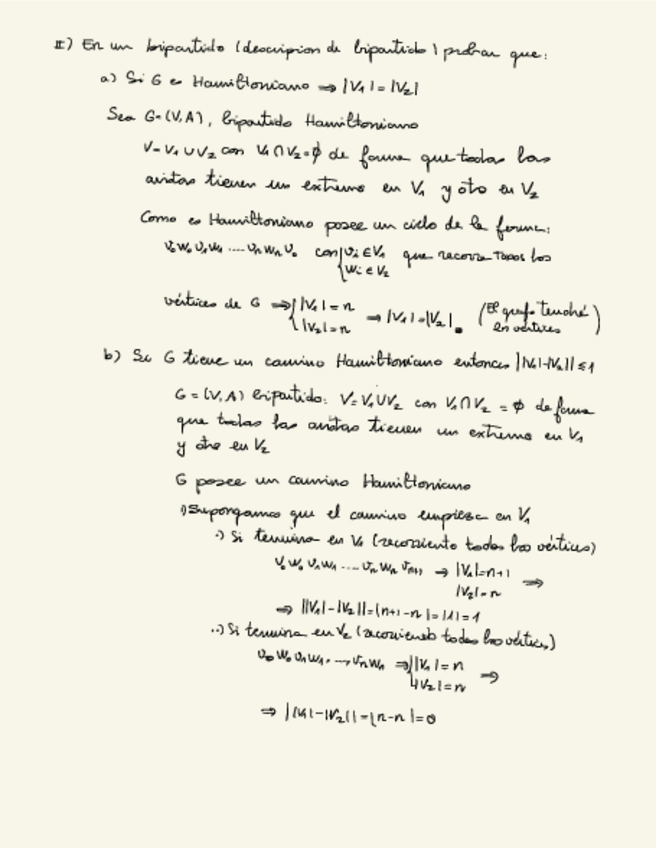 II) En un bipartido (descripcion de bipartido) probar que:
a) Si G es Hamiltoniano ⇒ |V₁| = |V₂|
Sea G=(V,A), bipartido Hamiltoniano
V=V₁∪V₂ con V₁∩V₂=∅ de forma que todas las
aristas tienen un extremo en V₁ y otro en V₂
Como es Hamiltoniano posee un ciclo de la forma:
v₀w₀v₁w₁....vₙwₙv₀ con {vᵢ∈V₁ que recorre todos los
wᵢ∈V₂
vértices de G ⇒ {|V₁|=n ⇒ |V₁|=|V₂|. (El grafo tendrá
|V₂|=n 2n vértices)
b) Si G tiene un camino Hamiltoniano entonces ||V₁|-|V₂|| ≤ 1
G=(V,A) bipartido: V=V₁∪V₂ con V₁∩V₂=∅ de forma
que todas las aristas tienen un extremo en V₁
y otro en V₂
G posee un camino Hamiltoniano
·) Supongamos que el camino empieza en V₁
·) Si termina en V₁ (recorriento todos los vértices)
v₀w₀v₁w₁....vₙwₙvₙ₊₁ ⇒ |V₁|=n+1 ⇒
|V₂|=n
⇒ ||V₁|-|V₂||=|n+1-n|=|1|=1
··) Si termina en V₂ (recorriendo todos los vértices)
v₀w₀v₁w₁....vₙwₙ ⇒ {|V₁|=n ⇒
|V₂|=n
⇒ ||V₁|-|V₂||=|n-n|=0